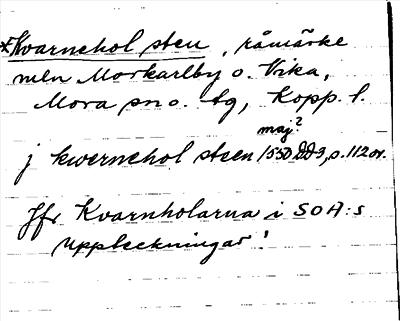 *Kvarnehol sten, råmärke
mln Morkarlby o. Vika,
Mora sn o. tg, Kopp. l.
maj?
j kwernehol steen 1550 DD 3, s. 112 or.
Jfr Kvarnholarna i SOA:s
uppteckningar!